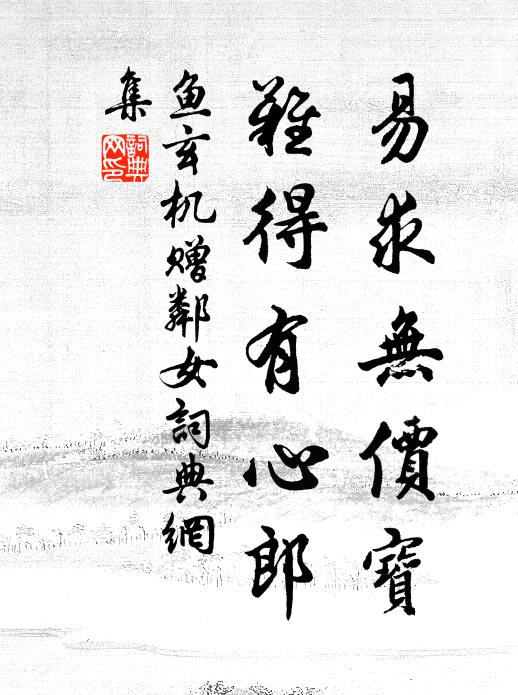 易求無價寶
難得有心郎
魚玄机贈鄰女詞典網
集
詞典網印